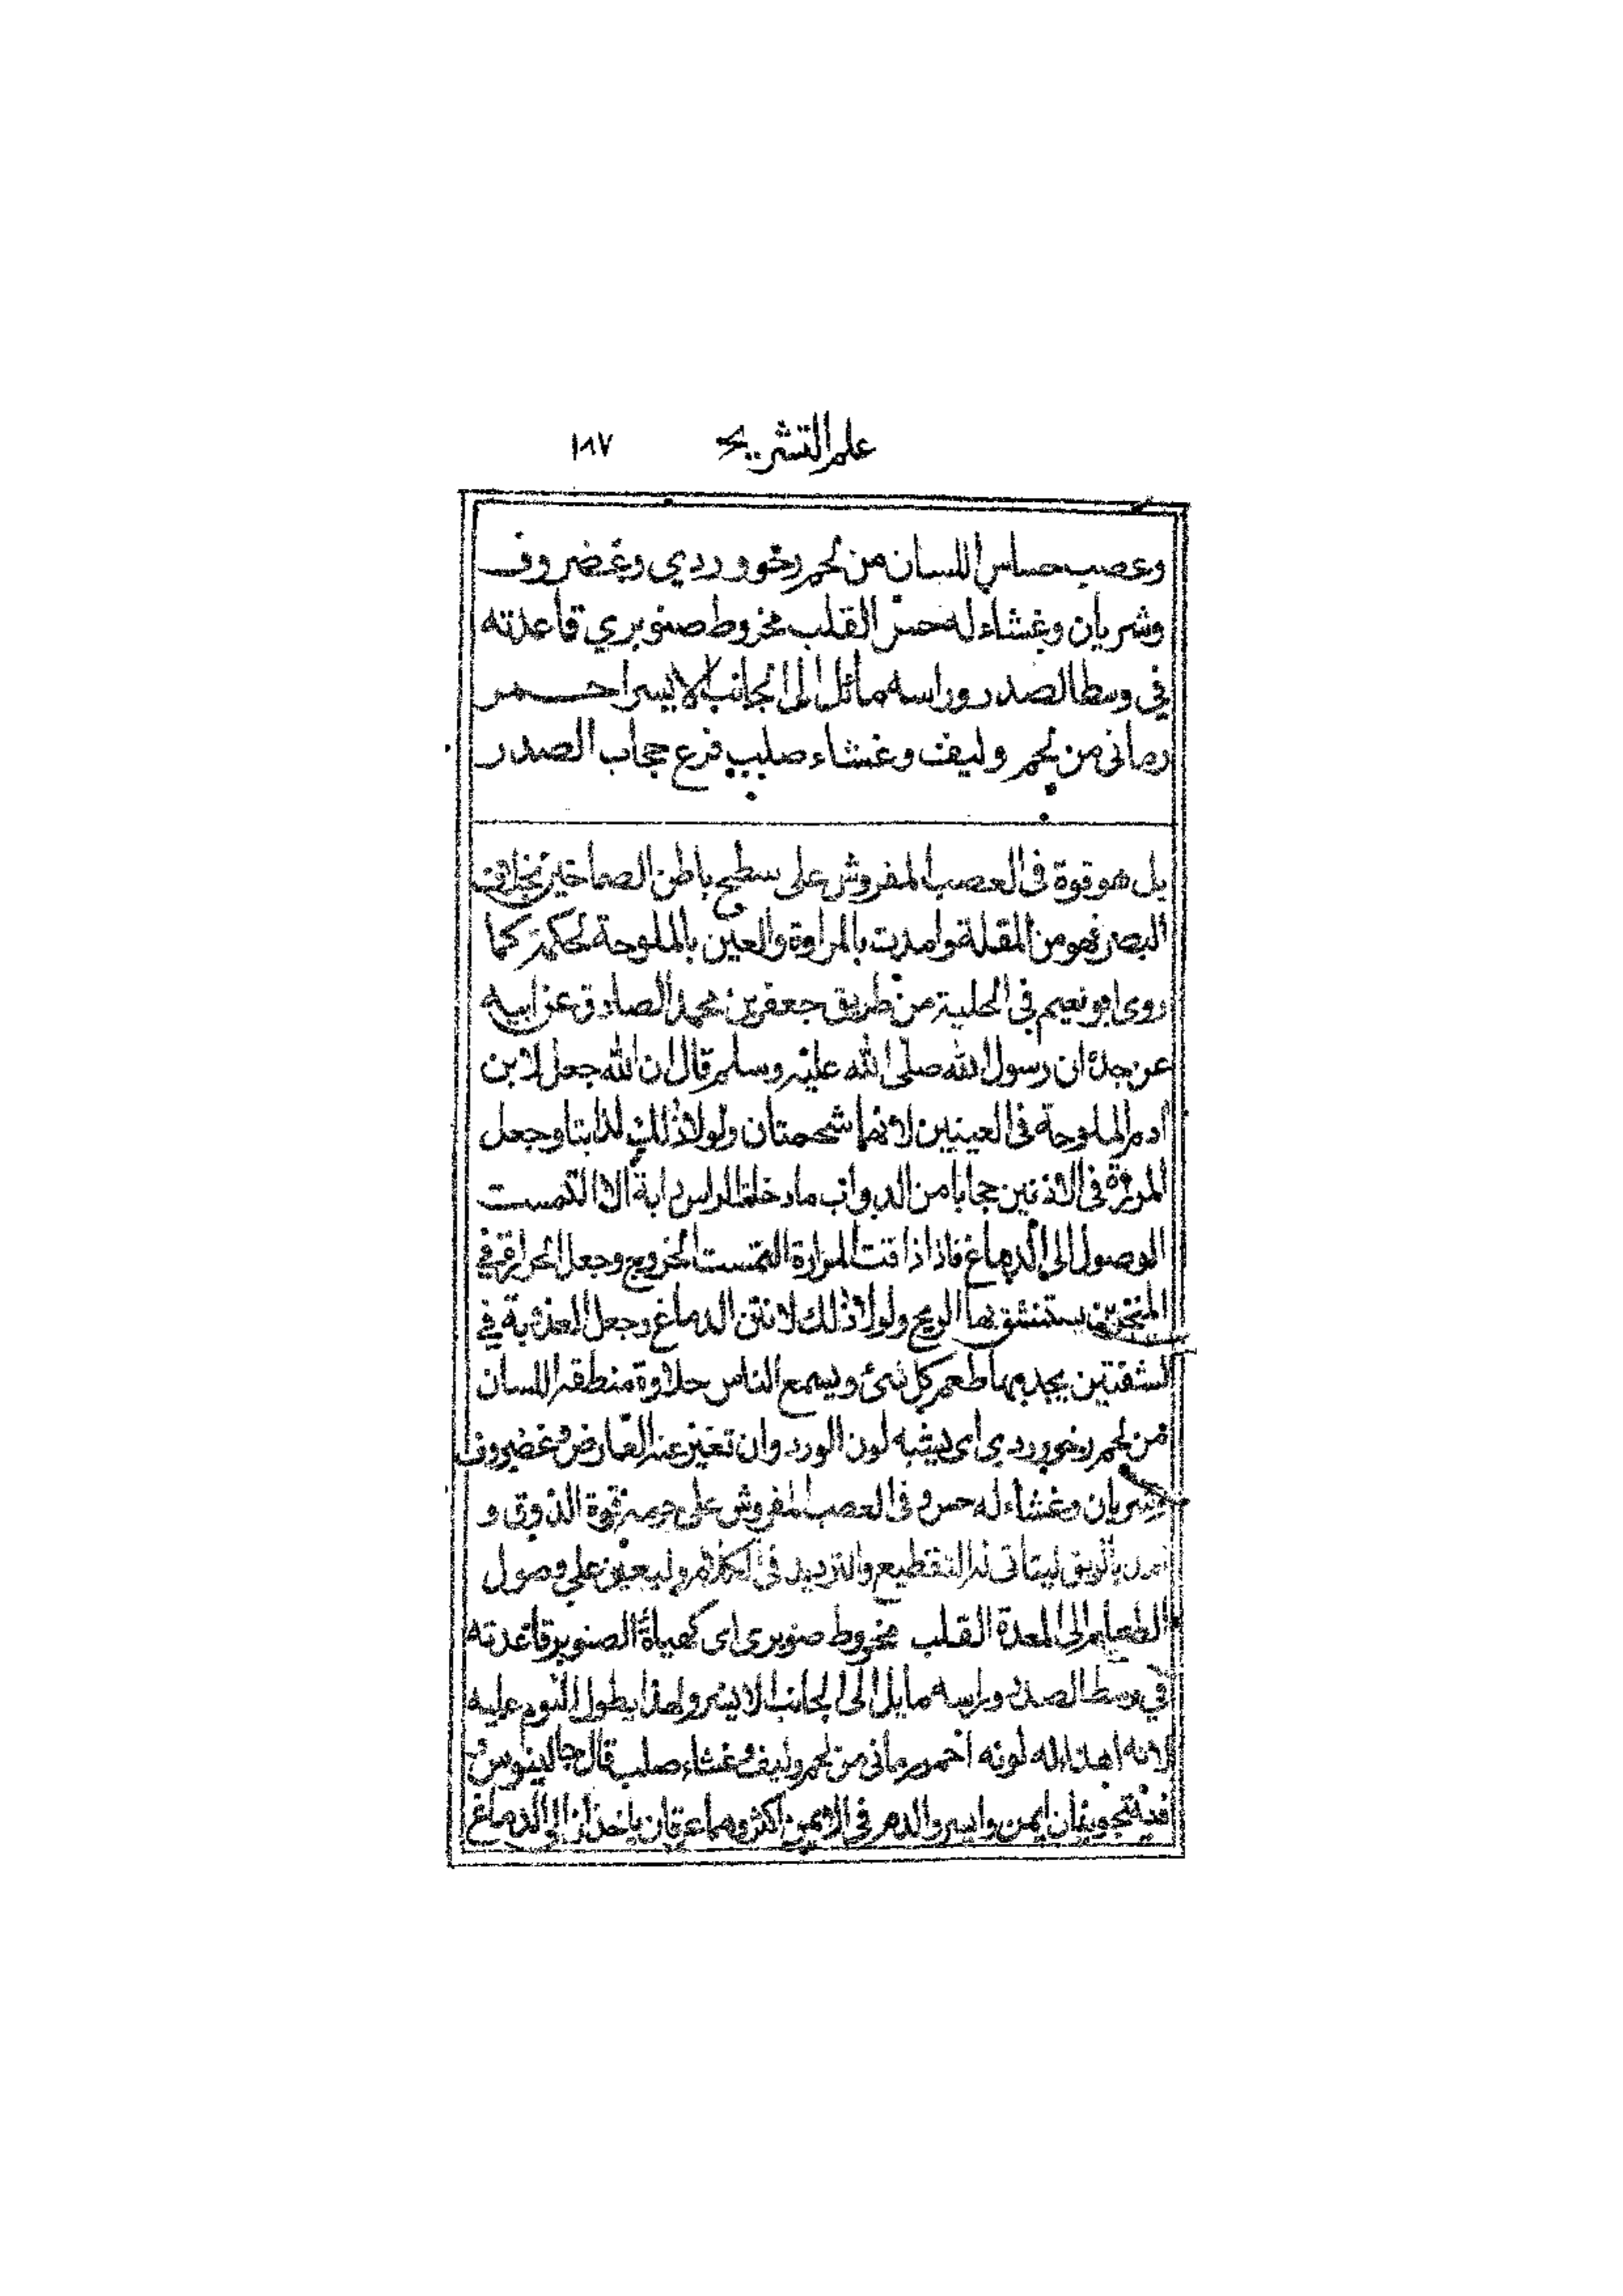 علم التشريح ١٨٧
وعصب حساس اللسان من لحم رخو وردي وغضروف
وشريان وغشاء له حس القلب مخروط صنوبري قاعدته
في وسط الصدر وراسه مائل الى الجانب الايسر احمر
رماني من لحم وليف وغشاء صلب فرع حجاب الصدر
بل هو قوة فى العصب المفروش على سطح باطن الصماخين بخلاف
البصر فهو من المقلة وامدت بالمراوة والعين بالملوحة لحكمة كما
روى ابو نعيم فى الحلية من طريق جعفر بن محمد الصادق عن ابيه
عن جده ان رسول الله صلى الله عليه وسلم قال ان الله جعل لابن
ادم الملوحة فى العينين لانهما شحمتان ولولا ذلك لذابتا وجعل
المرارة فى الاذنين حجابا من الدواب ما دخلت الراس دابة الا التمست
الوصول الى الدماغ فاذا ذاقت المرارة التمست الخروج وجعل الحرارة في
المنخرين يستنشق بهما الريح ولولا ذلك لانتن الدماغ وجعل العذوبة في
الشفتين يجد بهما طعم كل شئ ويسمع الناس حلاوة منطقه اللسان
من لحم رخو وردي اى يشبه لون الورد وان تغير عنه لعارض وغضروف
وشريان وغشاء له حس و فى العصب المفروش على جرمه قوة الذوق و
امد بالريق ليتاتى له التقطيع والترديد فى الكلام وليعين على وصول
الطعام الى المعدة القلب مخروط صنوبرى اى كهياة الصنوبر قاعدته
في وسط الصدر وراسه مايل الى الجانب الايسر ولهذا يطول النوم عليه
لانه اهنا له لونه احمر رمانى من لحم وليف وغشاء صلب قال جالينوس
فيه تجويفان ايمن وايسر والدم فى الايمن اكثر وهما عرقان ياخذان الى الدماغ